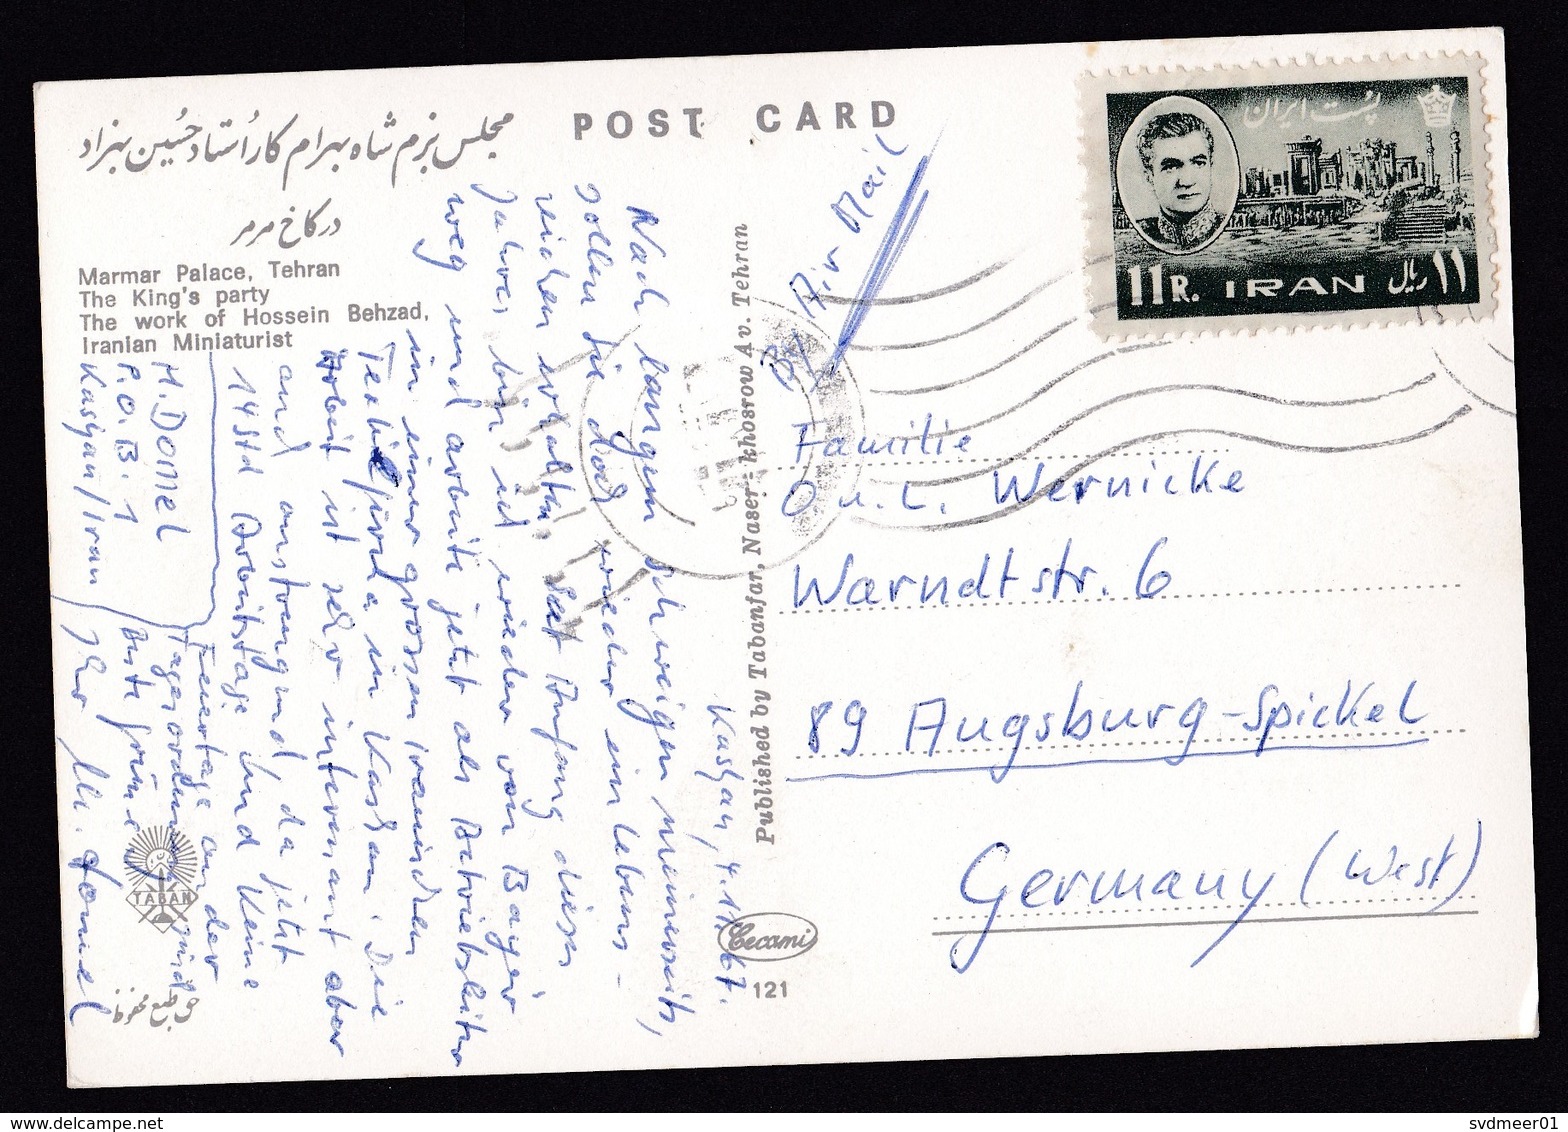 مجلس بزم شاه بهرام کار استاد حسین بهزاد
در کاخ مرمر
Marmar Palace, Tehran
The King's party
The work of Hossein Behzad,
Iranian Miniaturist
POST CARD
پست ایران
11 R. IRAN ۱۱ ریال
By Air Mail
Familie
O u. L. Wernicke
Warndtstr. 6
89 Augsburg-Spickel
Germany (West)
Published by Tabanfar, Naser-khosrow Av. Tehran
Kashan, 4.11.67.
Nach langem Schweigen meinerseits,
sollen Sie doch wieder ein Lebens-
zeichen erhalten. Seit Anfang diesen
Jahres bin ich wieder von Bayer
weg und arbeite jetzt als Betriebsleiter
in einer grossen iranischen
Textilfirma in Kashan. Die
Arbeit ist sehr interessant aber
auch anstrengend, da jetzt
14 Std Arbeitstage und keine
Feiertage an der
Tagesordnung sind
Beste Grüsse
Ihr
H. Domel
P.O.B. 1
Kashan/Iran
TABAN
حق طبع محفوظ
Cecami
121
svdmeer01